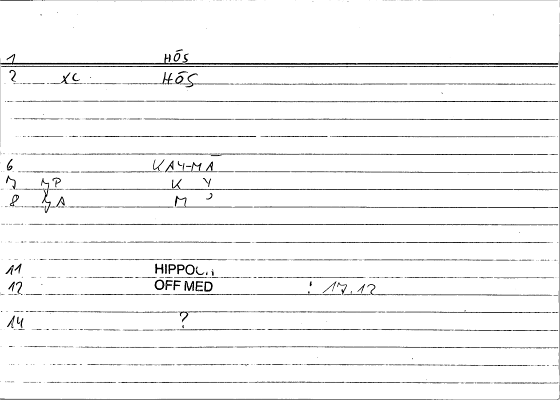 1 HŌS
2 XC HŌS
6 KAY-MA
7 YP K Y
8 YA M
11 HIPPOC
12 OFF MED : 17.12
14 ?